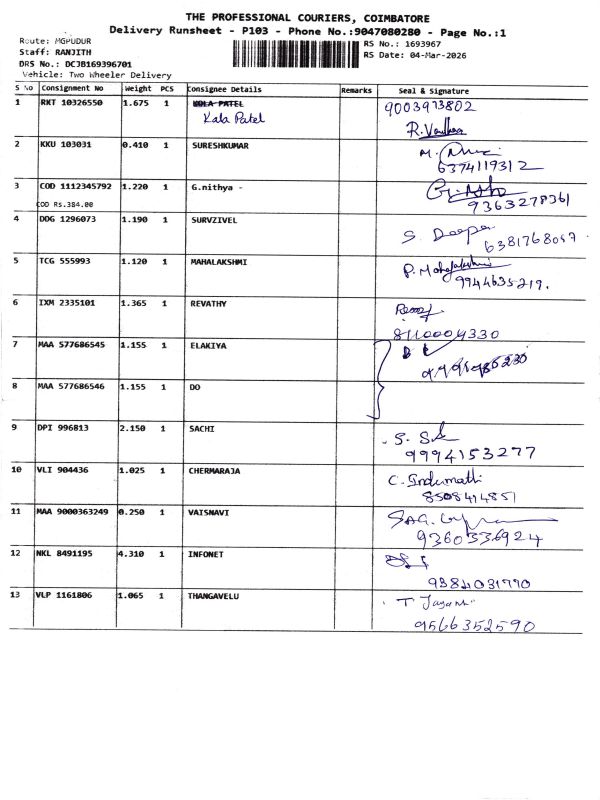 THE PROFESSIONAL COURIERS, COIMBATORE
Delivery Runsheet - P103 - Phone No.:9047080280 - Page No.:1
Route: MGPUDUR
RS No.: 1693967
Staff: RANJITH
RS Date: 04-Mar-2026
DRS No.: DCJB169396701
Vehicle: Two Wheeler Delivery
S No Consignment No Weight PCS Consignee Details Remarks Seal & Signature
1 RKT 10326550 1.675 1 KOLA PATEL 9003973802
Kala Patel
R.
2 KKU 103031 0.410 1 SURESHKUMAR M.
6374119312
3 COD 1112345792 1.220 1 G.nithya -
COD Rs.384.00 9363278361
4 DDG 1296073 1.190 1 SURVZIVEL S. Deepa
5 TCG 555993 1.120 1 MAHALAKSHMI P. Mahalakshmi
9944635219.
6 IXM 2335101 1.365 1 REVATHY
8110004330
7 MAA 577686545 1.155 1 ELAKIYA
8 MAA 577686546 1.155 1 DO
9 DPI 996813 2.150 1 SACHI S.
9994153277
10 VLI 904436 1.025 1 CHERMARAJA C. Indumathi
8508414851
11 MAA 9000363249 0.250 1 VAISNAVI
9360536924
12 NKL 8491195 4.310 1 INFONET
9384031770
13 VLP 1161806 1.065 1 THANGAVELU T
9566352590